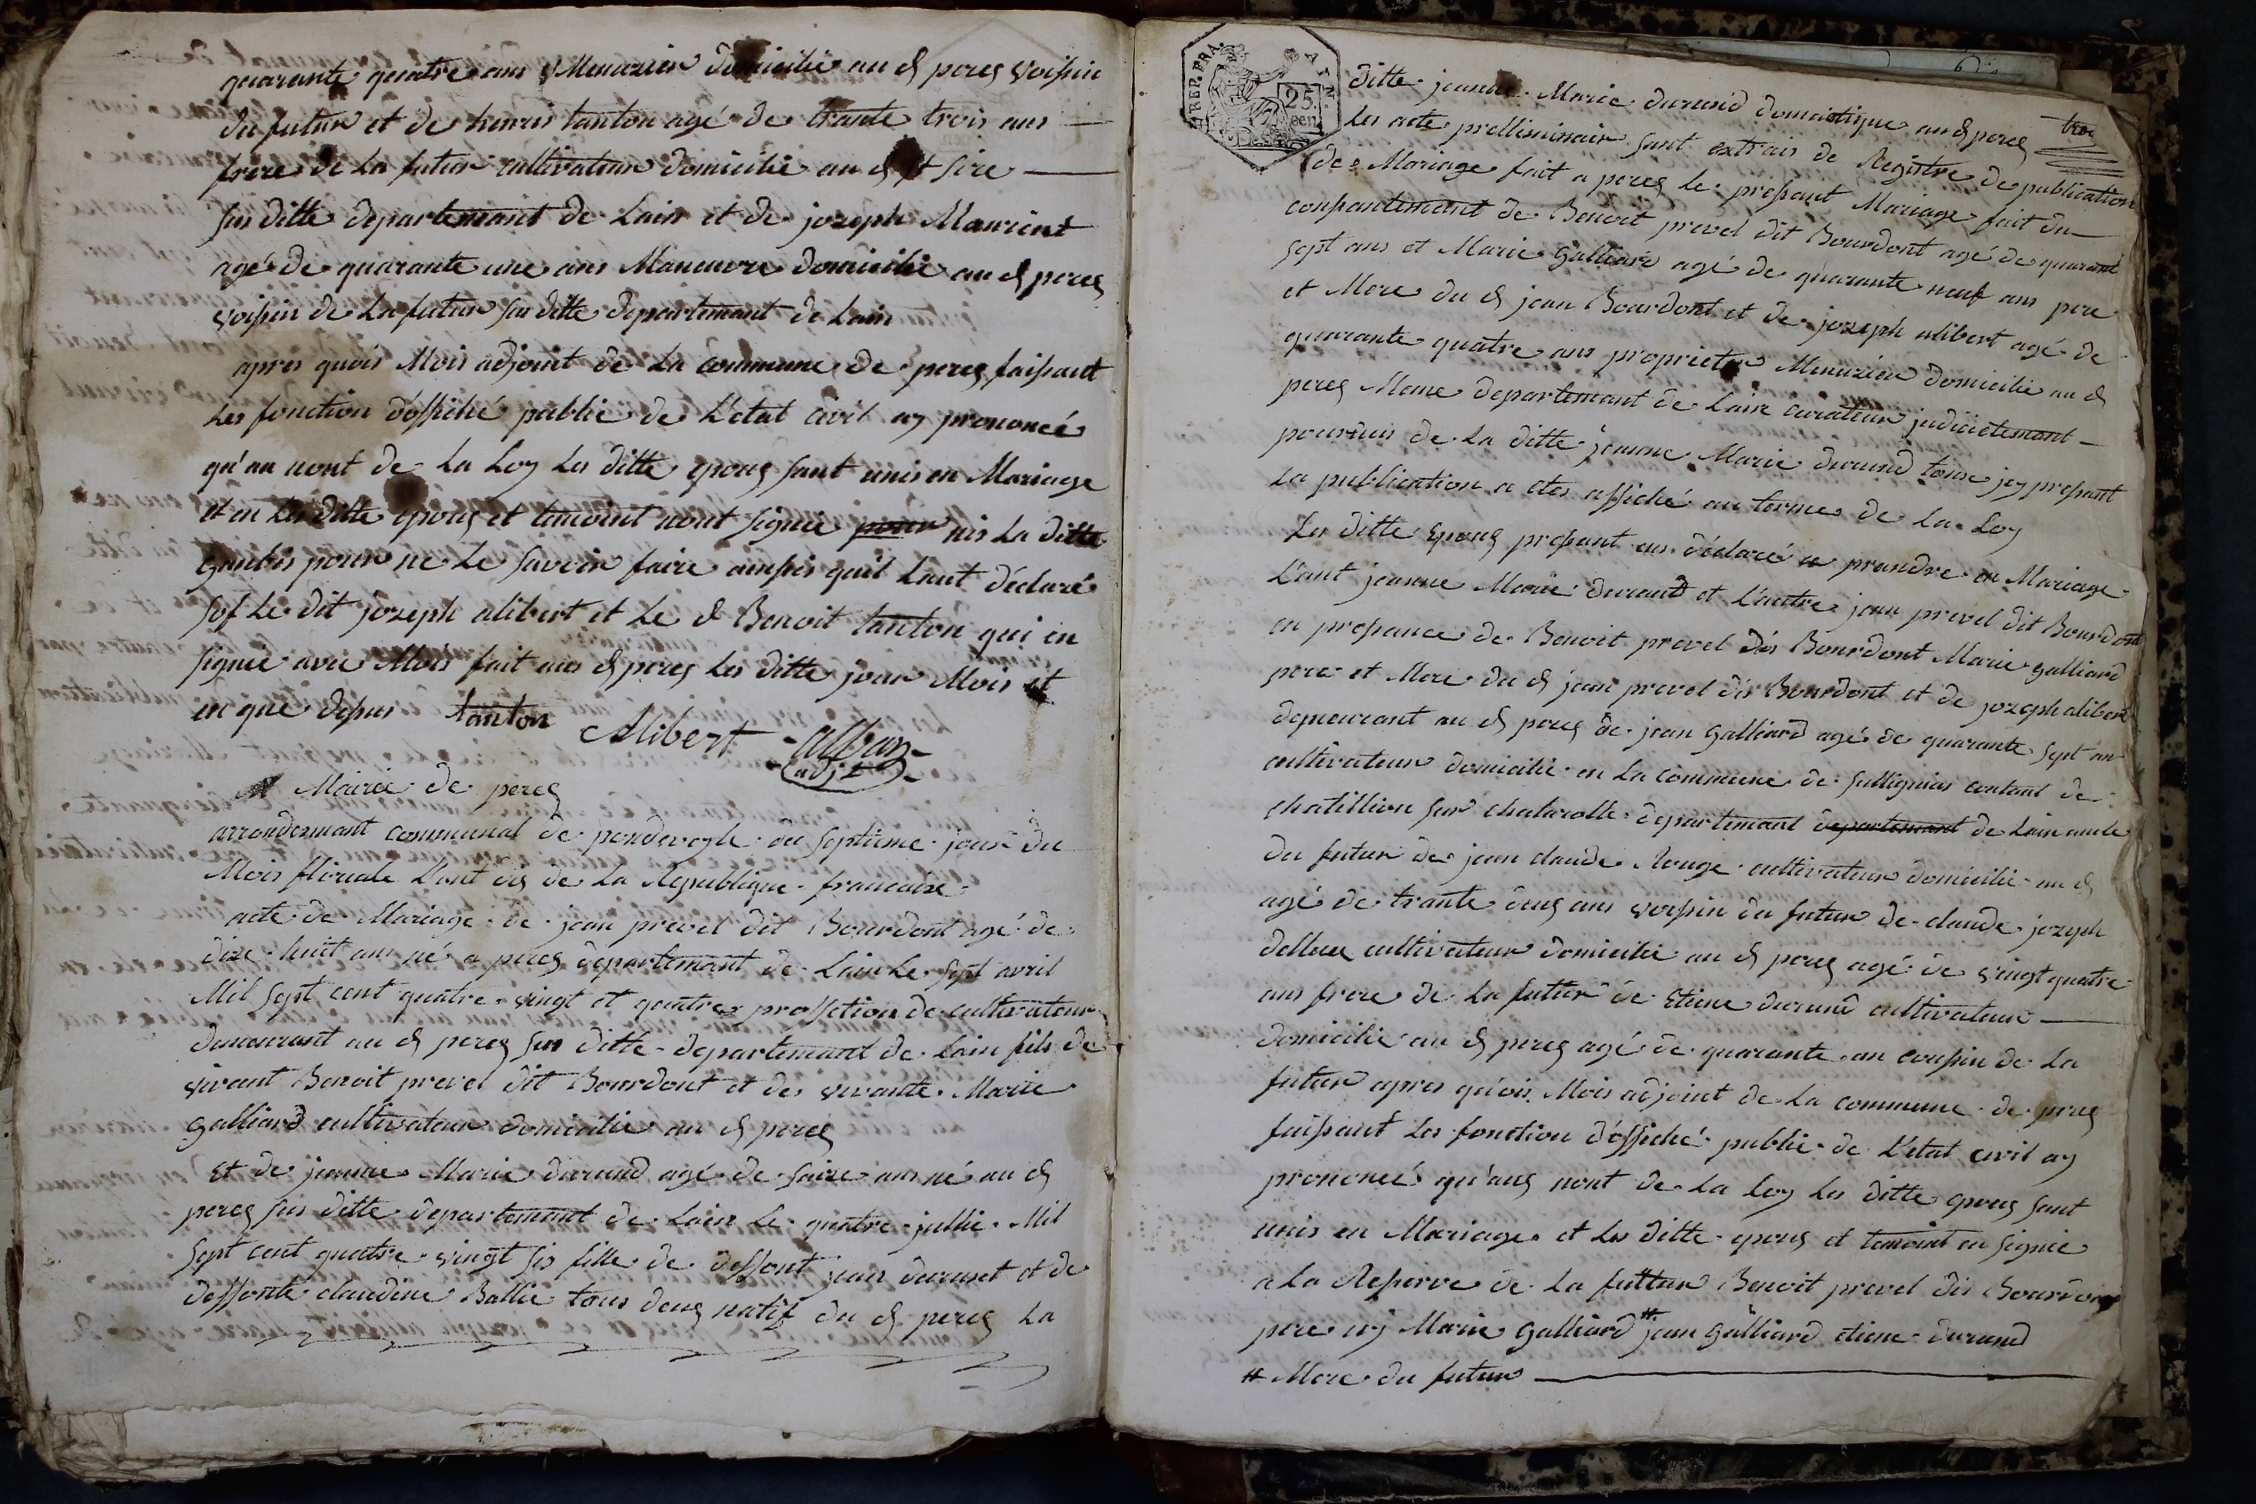 quarante quatre ans Menuzier domicilié au d peres voissin
du futur et de henris tanton agé de trante trois ans
frere de la futur cultivateur domicilié au d st sire
sus ditte departemant de Lain et de jozeph Maurient
agé de quarante une ans Maneuvre domicilié au d peres
voissin de La futur sus ditte departemant de Lain
apres quois Mois adjoint de La commune de peres faissant
Les fonction d'offiché public de L'etat civil ay prononcé
qu'au nont de La Loy Les ditte epous sont unis en Mariage
et en Les ditte epous et temoint nont signié pour nis La ditte
pour ne Le savoir faire ainssis quil Lont déclaré
sof Le dit jozeph alibert et Le d Benoit tanton qui on
signié avec Mois fait aus d peres Les ditte jour Mois et
en que desus tanton Alibert alban
adjt
Mairie de peres
arrondesmant communal de pondevegle du septieme jour du
Mois floriale L'ant dis de La Republique francaise
acte de Mariage de jean prevel dit Bourdont agé de
dize huit ans né a peres departemant de Lain Le sept avril
Mil sept cent quatre vingt et quatre proffetion de cultivateur
demeurant au d peres sus ditte departemant de Lain fils de
vivant Benoit prevel dit Bourdont et des vivante Marie
Galliard cultivateur domicilié au d peres
Et de jeanne Marie durand agé de saize ans né au d
peres sus ditte departemant de Lain Le quatre jullie Mil
sept cent quatre vingt sis fille de deffont jean durant et de
deffonte claudine Ballie tous deus natif du d peres La
REP. FRA.
25
cen
ditte jeanne Marie durand domestique au d peres
trois
Les acte prelliminair sont extrais de Registre de publication
de Mariage fait a peres Le pressant Mariage fait du
conssantemant de Benoit prevel dit Bourdont agé de quarant
sept ans et Marie Galliard agé de quarante neuf ans pere
et Mere du d jean Bourdont et de jozeph alibert agé de
quarante quatre ans proprietер Menuzier domicilié au d
peres Meme departemant de Lain curateur judicietemant
pourvuis de La ditte jeanne Marie durand tous jcy pressant
La publication a etes affiché au terme de La Loy
Les ditte Epous pressant ons déclaré prandre en Mariage
L'ant jeanne Marie durand et L'autre jean prevel dit Bourdont
en pressance de Benoit prevel dis Bourdont Marie galliard
pere et Mere du d jean prevel dis Bourdont et de jozeph alibert
demeurant au d peres de jean Galliard agé de quarante sept an
cultivateur domicilié en La commune de sulligniat contant de
chatillion sur chalarolle departemant departemant de Lain oncle
du futur de jean claude Rouge cultivateur domicilié au d
agé de trante deus ans voissin du futur de claude jozeph
cultivateur domicilié au d peres agé de vingt quatre
ans frere de La futtur de Etiene durand cultivateur
domicilié au d peres agé de quarante an coussin de La
futur apres qu'ois Mois adjoint de La commune de peres
faissant Les fonction d'offiché public de L'etat civil ay
prononcé qu'aus nont de La Loy Les ditte epous sont
unis en Mariage et Les ditte epous et temoint on signié
a La Reserve de La futtur Benoit prevel dis Bourdont
pere Marie Galliard # jean Galliard etiene durand
# Mere du futur